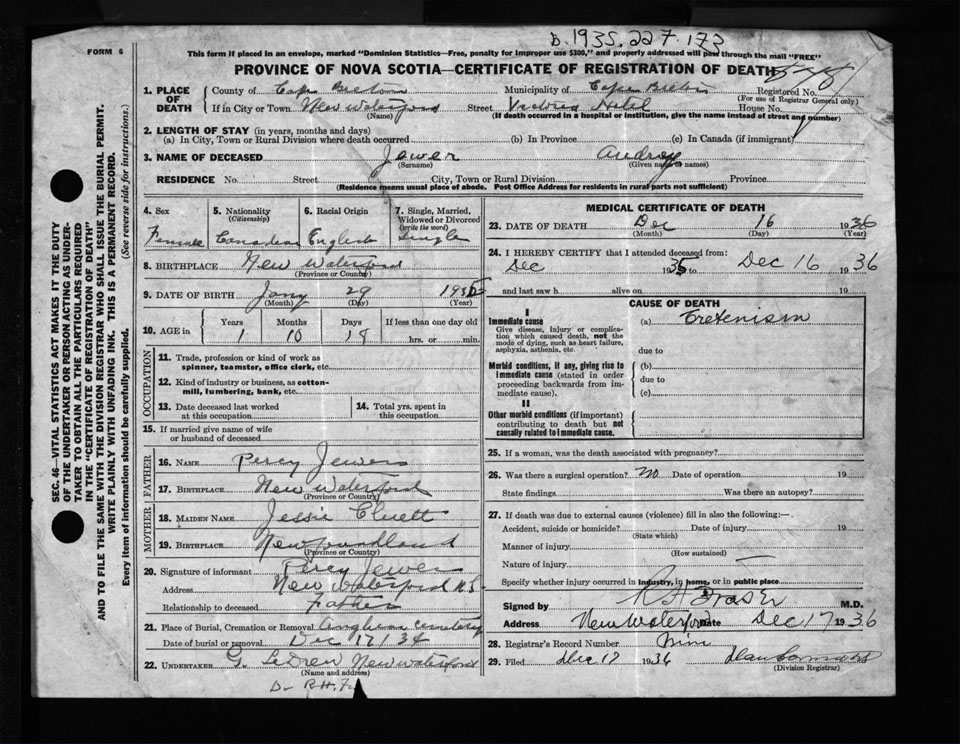 B. 1935. 227. 173
FORM 6
This form if placed in an envelope, marked "Dominion Statistics—Free, penalty for improper use $300," and properly addressed will pass through the mail "FREE"
PROVINCE OF NOVA SCOTIA—CERTIFICATE OF REGISTRATION OF DEATH
1. PLACE OF DEATH
County of Cape Breton Municipality of Cape Breton Registered No.
(For use of Registrar General only)
If in City or Town New Waterford Street House No.
(Name) (If death occurred in a hospital or institution, give the name instead of street and number)
2. LENGTH OF STAY (in years, months and days)
(a) In City, Town or Rural Division where death occurred (b) In Province (c) In Canada (if immigrant)
3. NAME OF DECEASED Jewer Audrey
(Surname) (Given name or names)
RESIDENCE No. Street City, Town or Rural Division Province
(Residence means usual place of abode. Post Office Address for residents in rural parts not sufficient)
SEC. 46—VITAL STATISTICS ACT MAKES IT THE DUTY
OF THE UNDERTAKER OR PERSON ACTING AS UNDER-
TAKER TO OBTAIN ALL THE PARTICULARS REQUIRED
IN THE "CERTIFICATE OF REGISTRATION OF DEATH"
AND TO FILE THE SAME WITH THE DIVISION REGISTRAR WHO SHALL ISSUE THE BURIAL PERMIT.
WRITE PLAINLY WITH UNFADING INK. THIS IS A PERMANENT RECORD.
Every item of information should be carefully supplied. (See reverse side for instructions.)
4. Sex 5. Nationality 6. Racial Origin 7. Single, Married,
(Citizenship) Widowed or Divorced
(write the word)
Female Canadian English Single
8. BIRTHPLACE New Waterford
(Province or Country)
9. DATE OF BIRTH Jany 29 1935
(Month) (Day) (Year)
10. AGE in Years Months Days If less than one day old
1 10 18 hrs. or min.
OCCUPATION
11. Trade, profession or kind of work as
spinner, teamster, office clerk, etc.
12. Kind of industry or business, as cotton-
mill, lumbering, bank, etc.
13. Date deceased last worked
at this occupation
14. Total yrs. spent in
this occupation
15. If married give name of wife
or husband of deceased
FATHER
16. NAME Percy Jewer
17. BIRTHPLACE New Waterford
(Province or Country)
MOTHER
18. MAIDEN NAME Jessie Cluett
19. BIRTHPLACE Newfoundland
(Province or Country)
20. Signature of informant Percy Jewer
Address New Waterford N.S.
Relationship to deceased Father
21. Place of Burial, Cremation or Removal Anglican cemetery
Date of burial or removal Dec 17/34
22. UNDERTAKER G. LeDrew New Waterford
(Name and address)
D— R.H.
MEDICAL CERTIFICATE OF DEATH
23. DATE OF DEATH Dec 16 1936
(Month) (Day) (Year)
24. I HEREBY CERTIFY that I attended deceased from:
Dec 1935 to Dec 16 1936
and last saw h alive on 19
CAUSE OF DEATH
I
Immediate cause (a) Cretenism
Give disease, injury or complica-
tion which caused death, not the
mode of dying, such as heart failure,
asphyxia, asthenia, etc.
due to
Morbid conditions, if any, giving rise to (b)
immediate cause (stated in order
proceeding backwards from im-
mediate cause).
due to
(c)
II
Other morbid conditions (if important)
contributing to death but not
causally related to immediate cause.
25. If a woman, was the death associated with pregnancy?
26. Was there a surgical operation? No Date of operation 19
State findings Was there an autopsy?
27. If death was due to external causes (violence) fill in also the following:—
Accident, suicide or homicide? Date of injury 19
(State which)
Manner of injury
(How sustained)
Nature of injury
Specify whether injury occurred in industry, in home, or in public place
Signed by R H Fraser M.D.
Address New Waterford Date Dec 17 1936
28. Registrar's Record Number
29. Filed Dec 17 1936
(Division Registrar)